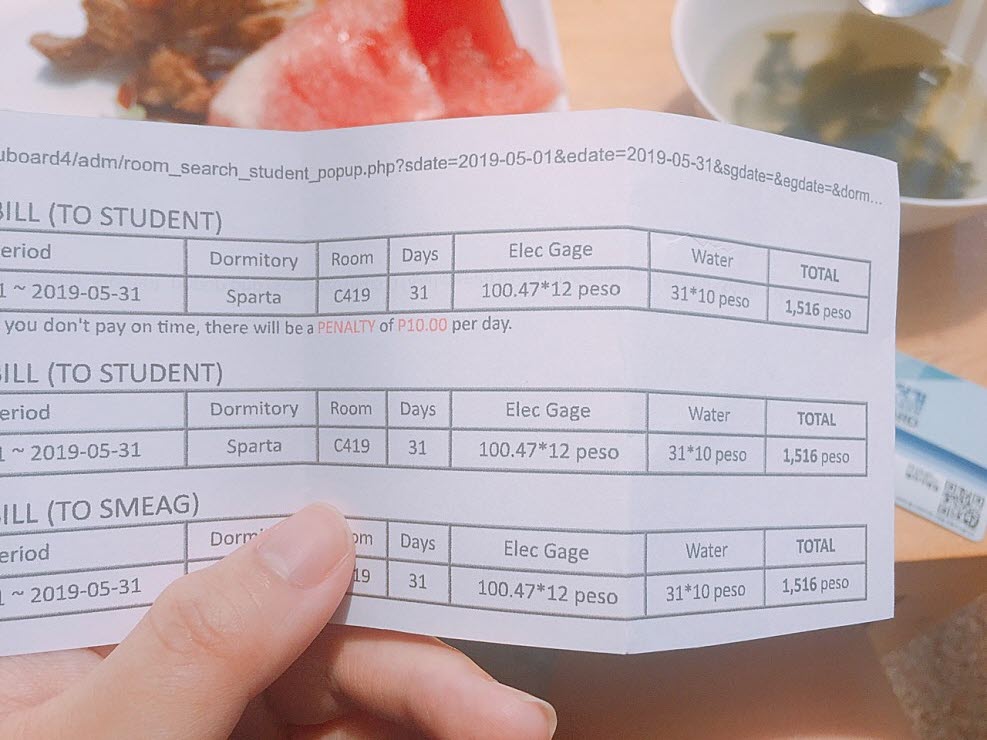 uboard4/adm/room_search_student_popup.php?sdate=2019-05-01&edate=2019-05-31&sgdate=&egdate=&dorm...
BILL (TO STUDENT)
eriod Dormitory Room Days Elec Gage Water TOTAL
1 ~ 2019-05-31 Sparta C419 31 100.47*12 peso 31*10 peso 1,516 peso
you don't pay on time, there will be a PENALTY of P10.00 per day.
BILL (TO STUDENT)
eriod Dormitory Room Days Elec Gage Water TOTAL
1 ~ 2019-05-31 Sparta C419 31 100.47*12 peso 31*10 peso 1,516 peso
BILL (TO SMEAG)
eriod Dormi om Days Elec Gage Water TOTAL
1 ~ 2019-05-31 19 31 100.47*12 peso 31*10 peso 1,516 peso